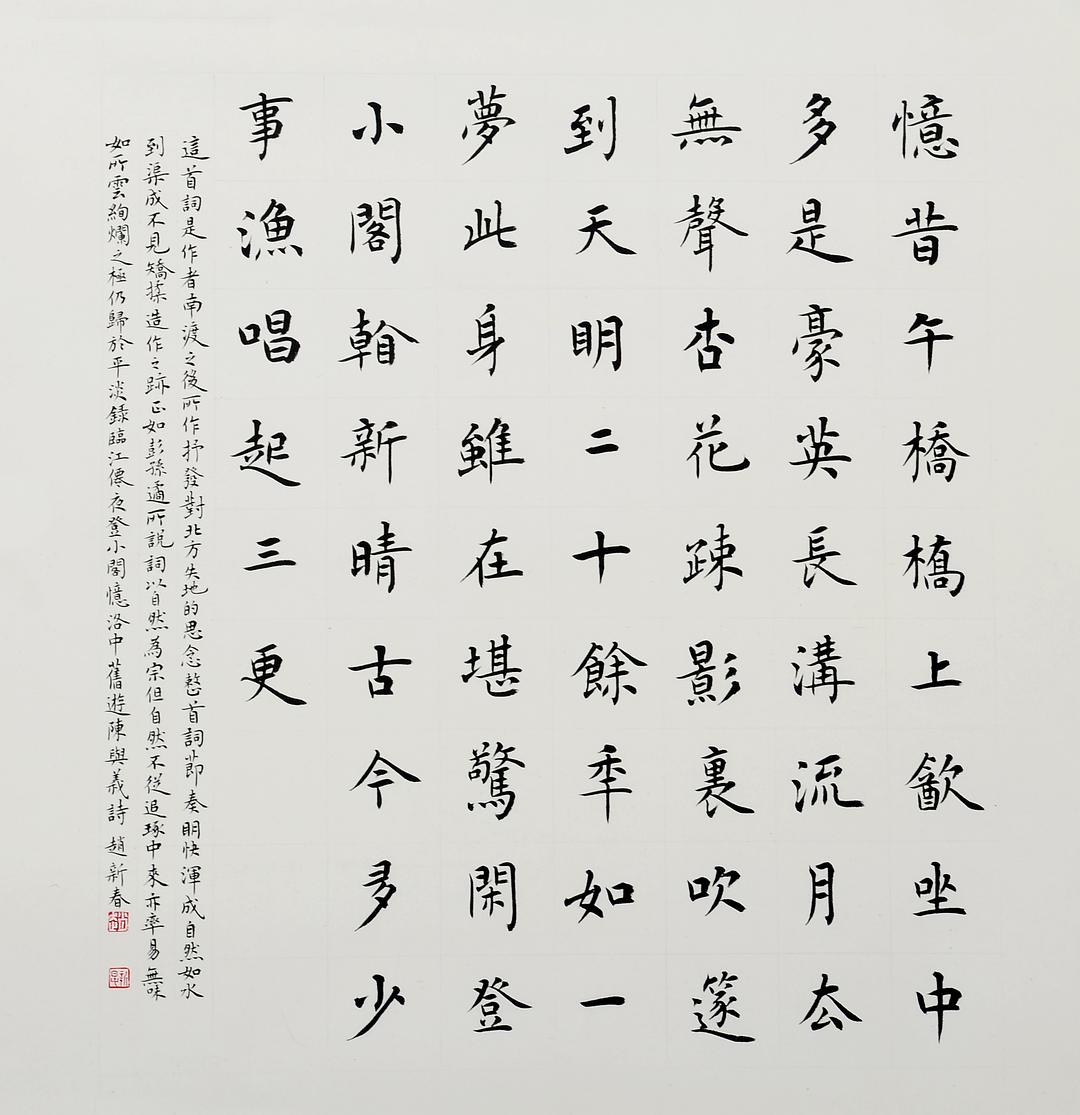 憶昔午橋橋上飲坐中
多是豪英長溝流月去
無聲杏花疎影裏吹篴
到天明二十餘年如一
夢此身雖在堪驚閑登
小閣㫺新晴古今多少
事漁唱起三更
這首詞是作者南渡之後所作抒發對北方失地的思念整首詞節奏明快渾成自然如水
到渠成不見矯揉造作之跡正如彭孫遹所說詞以自然為宗但自然不從追琢中來亦率易無味
如所雲絢爛之極仍歸於平淡錄臨江僊夜登小閣憶洛中舊遊陳與義詩 趙新春